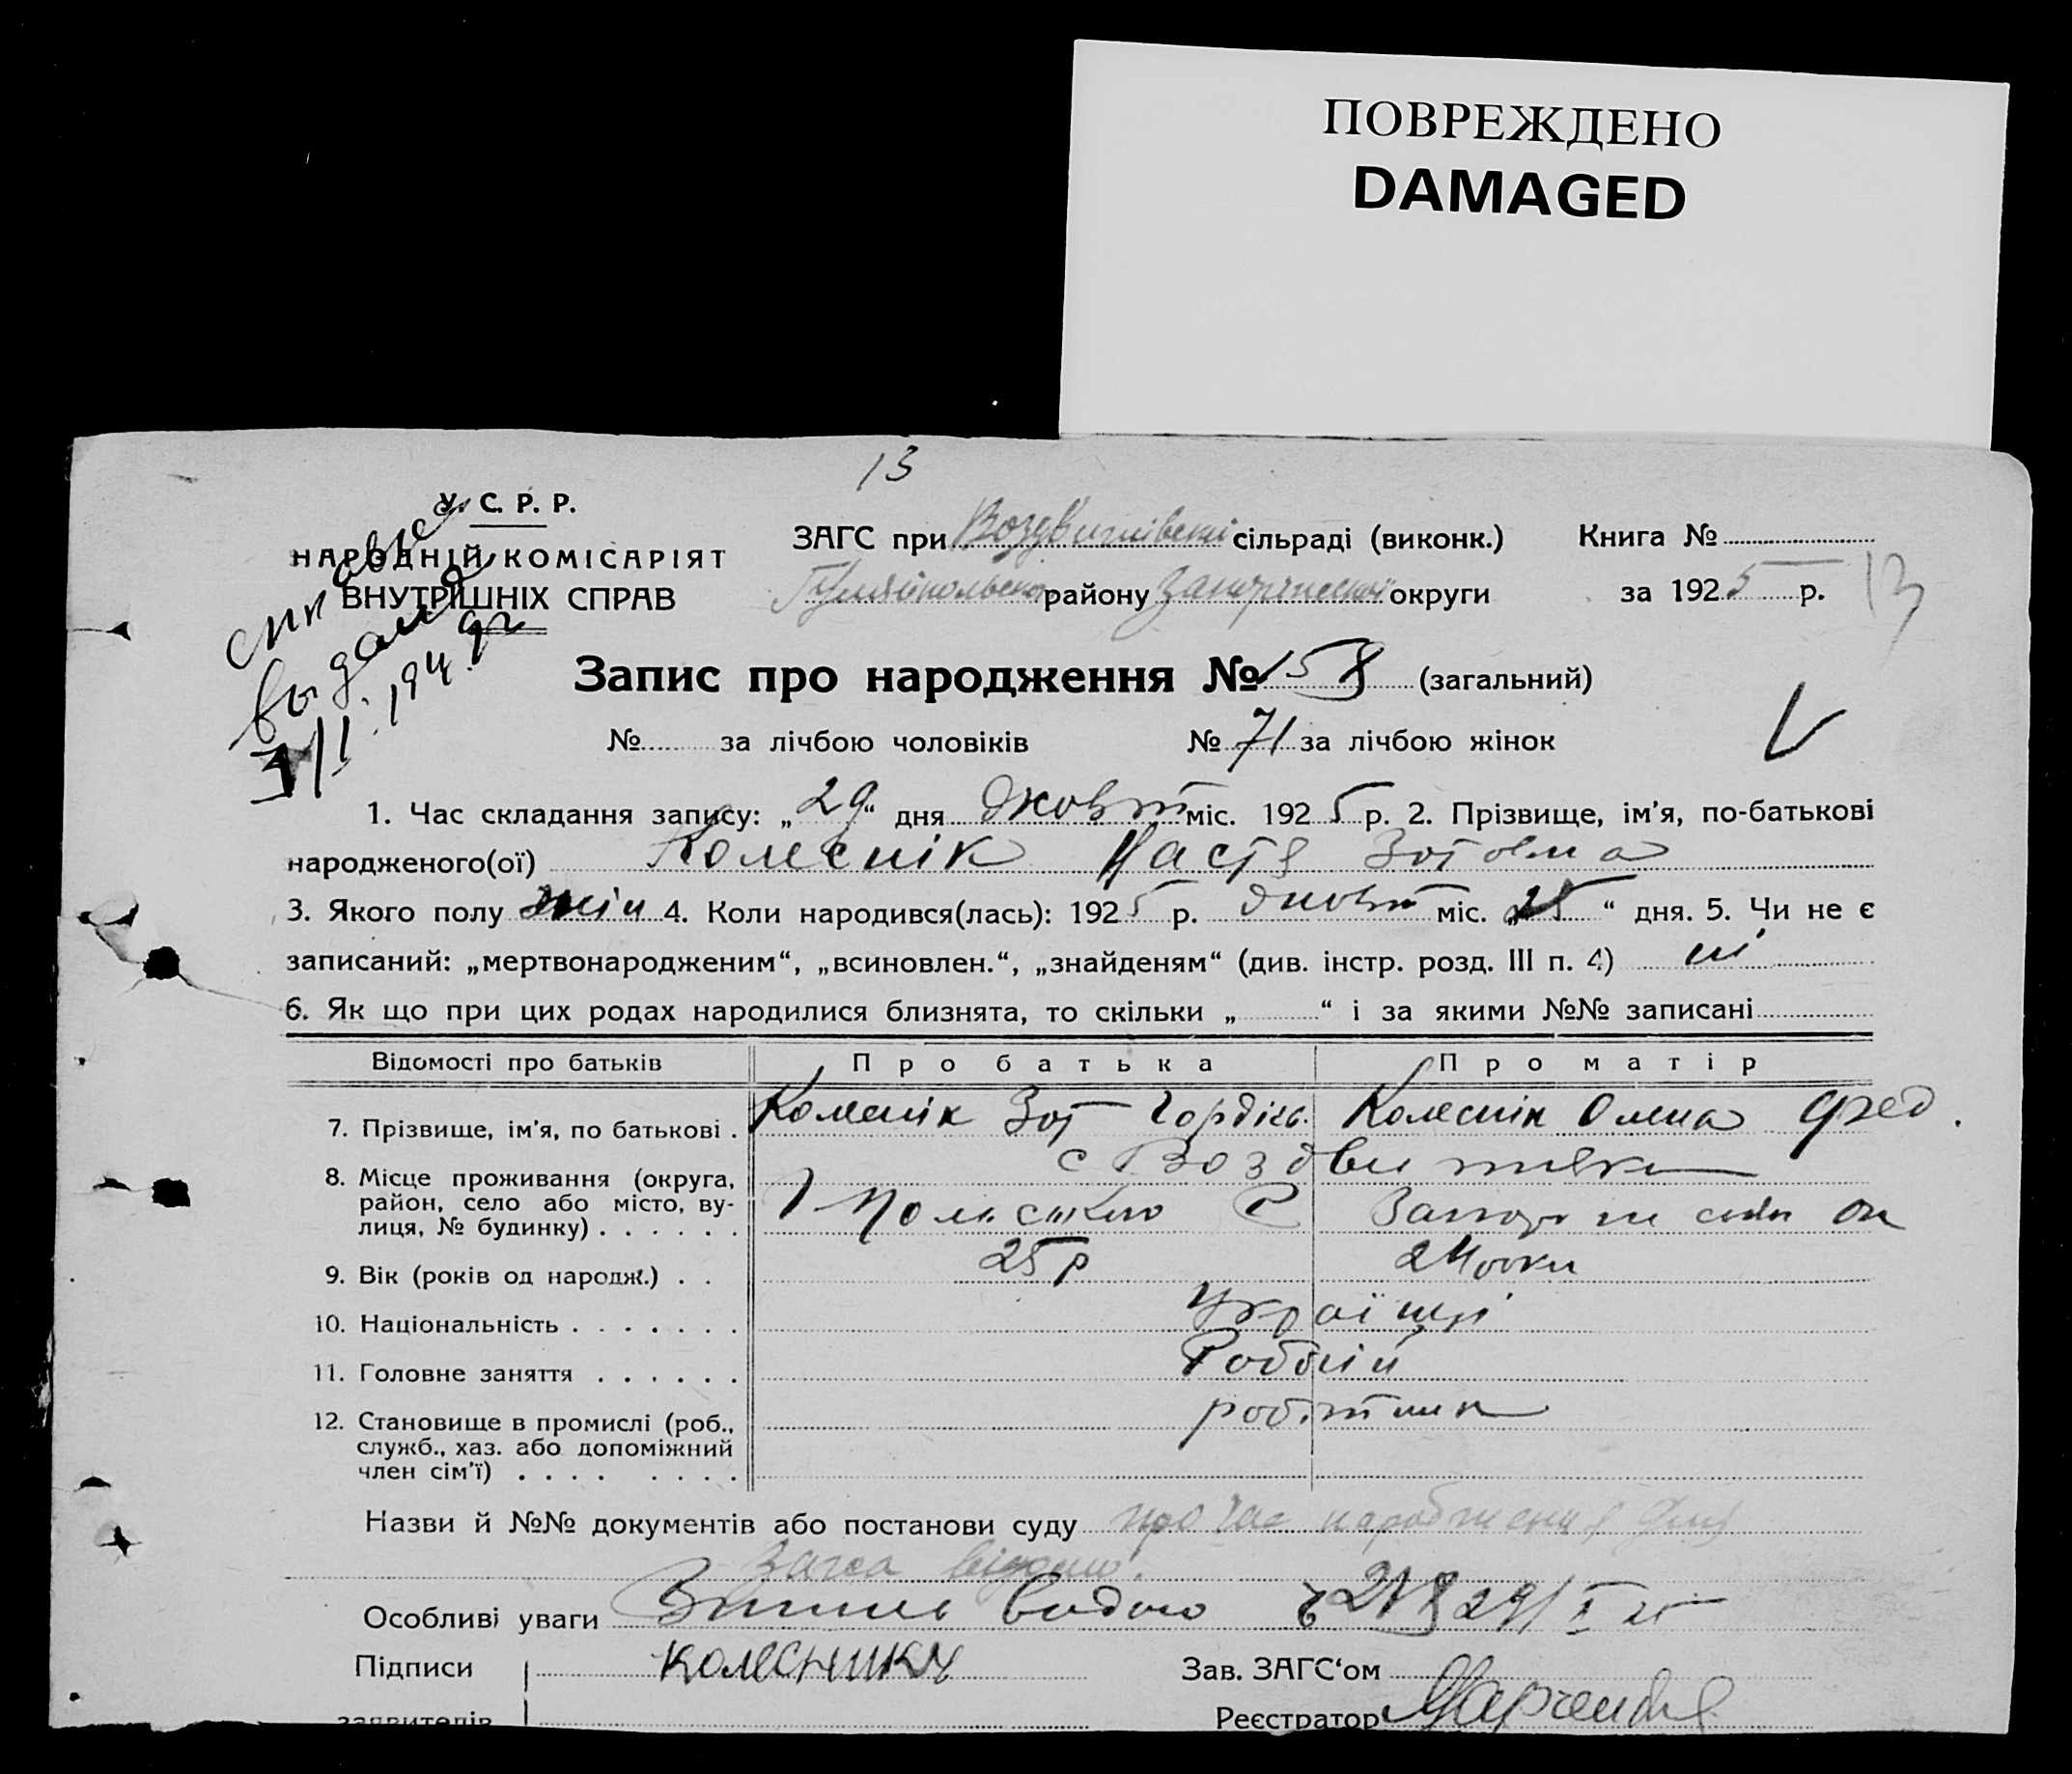 ПОВРЕЖДЕНО
DAMAGED
13
У. С. Р. Р.
НАРОДНІЙ КОМІСАРІЯТ
ВНУТРІШНІХ СПРАВ
ЗАГС при Воздвижівській сільраді (виконк.)
Гуляйпольского району Запоріжської округи
Книга №
за 1925 р.
13
выдана
Запис про народження № 158 (загальний)
№ за лічбою чоловіків № 71 за лічбою жінок
1. Час складання запису: „29“ дня жовт міс. 1925 р. 2. Прізвище, ім'я, по-батькові
народженого(ої) Колеснік Настя Зотовна
3. Якого полу жін 4. Коли народився(лась): 1925 р. жовт міс. „25“ дня. 5. Чи не є
записаний: „мертвонародженим“, „всиновлен.“, „знайденям“ (див. інстр. розд. III п. 4) ні
6. Як що при цих родах народилися близнята, то скільки „ “ і за якими №№ записані
Відомості про батьків Про батька Про матір
7. Прізвище, ім'я, по батькові . Колеснік Зот Гордієв. Колеснік Олена Фед.
8. Місце проживання (округа,
район, село або місто, ву-
лиця, № будинку) . . . . . .
с Воздвижівка
9. Вік (років од народж.) . . 25 р 24 роки
10. Національність . . . . . . . Українці
11. Головне заняття . . . . . .
12. Становище в промислі (роб.,
служб., хаз. або допоміжний
член сім'ї) . . . . . . . .
робітник
Назви й №№ документів або постанови суду про час народження
Загса видано.
Особливі уваги видано 218 29/X 25
Підписи Колесникъ
Зав. ЗАГС'ом
заявителів
Реєстратор